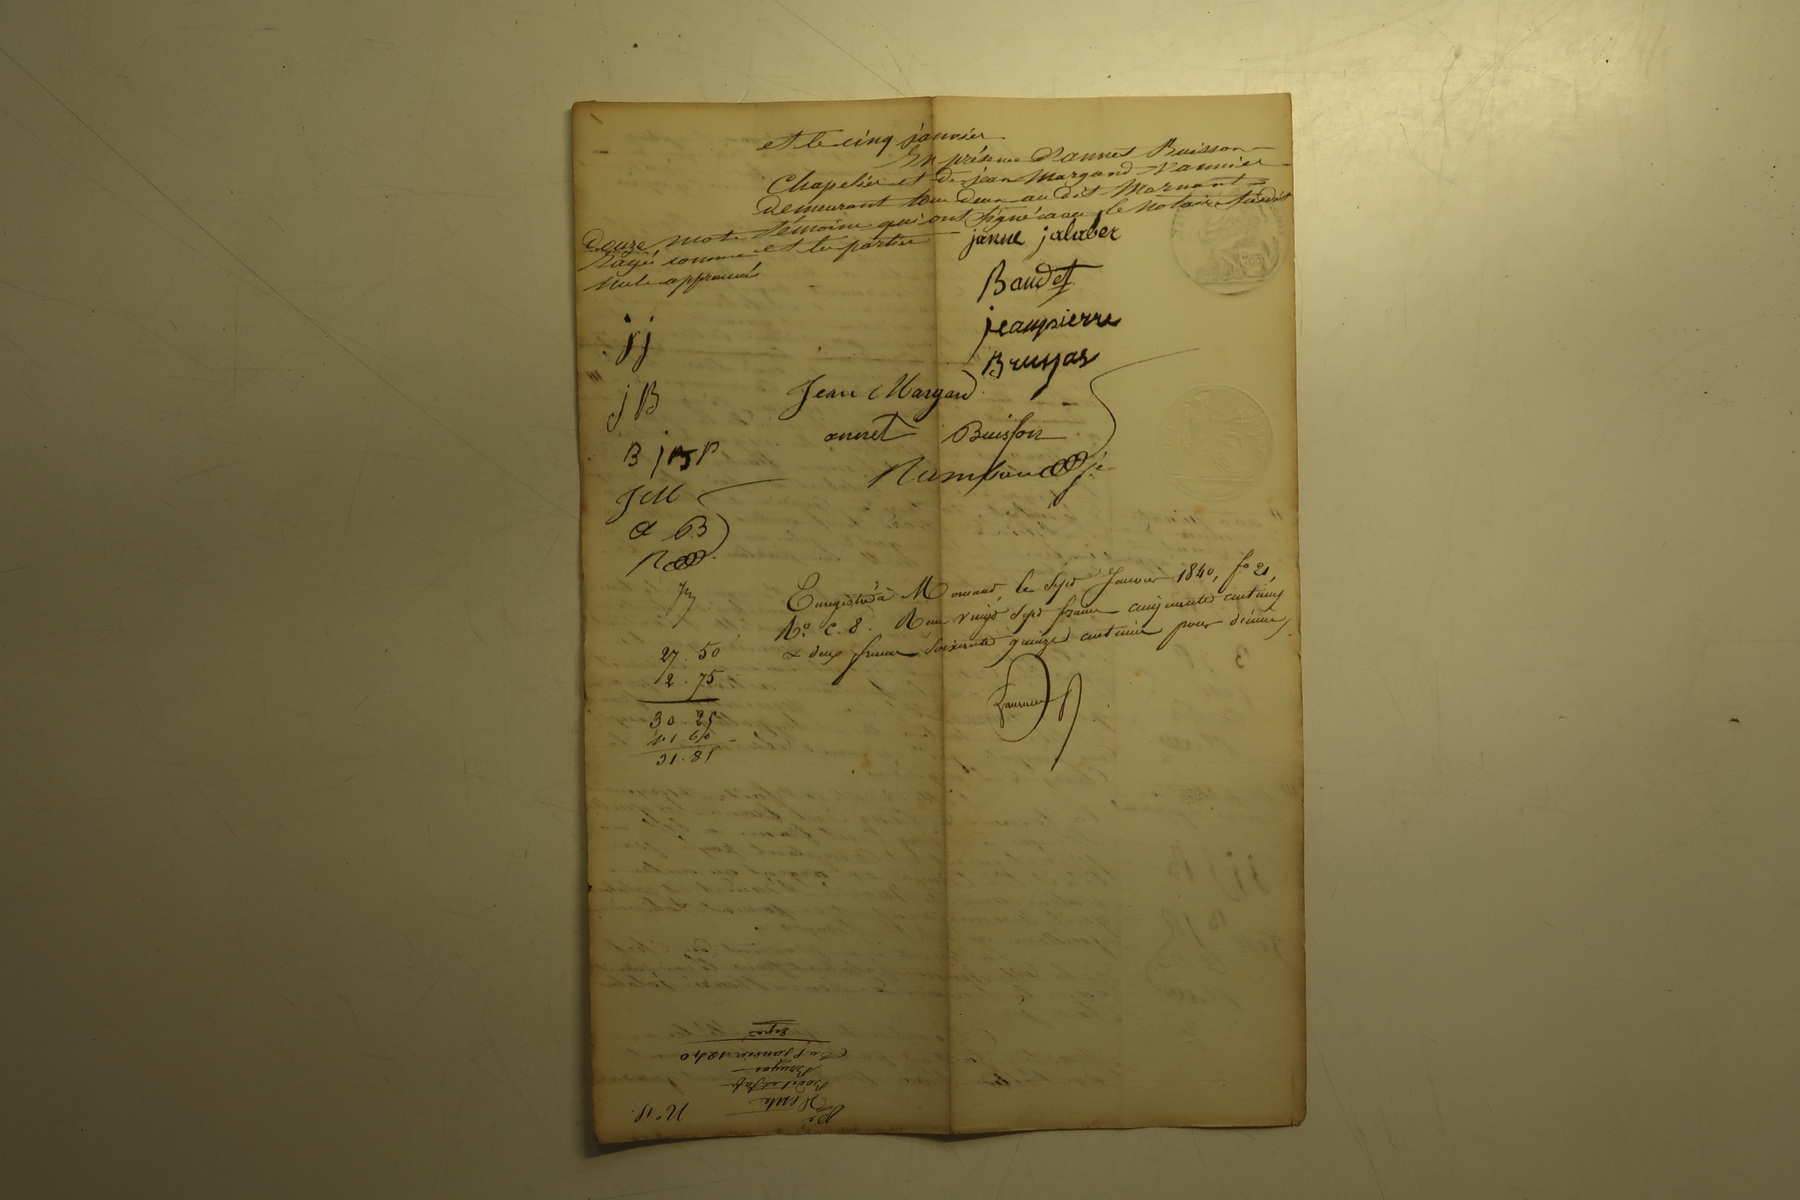 et le cinq janvier
En présence d'annet Buisson
Chapelier et de jean Margand Vannier
demeurant tous deux au dit Mornant
témoins qui ont signé avec le Notaire susdit
et les parties
Douze mots
Rayés comme
nuls approuvés
janne jalaber
Baudet
jeanpierre
Bruyas
Jean Margand
annet Buisson
jj
jB
B jP
JM
a B
Enregistré à Mornant, le sept Janvier 1840, f.o 21,
R.o C. 8. Reçu vingt sept francs cinquante centimes
& deux francs soixante quinze centimes pour décime
27. 50
2. 75
30. 25
1. 60
31. 85
N.o 15.
Vente
Bruyas
Du 5 janvier 1840